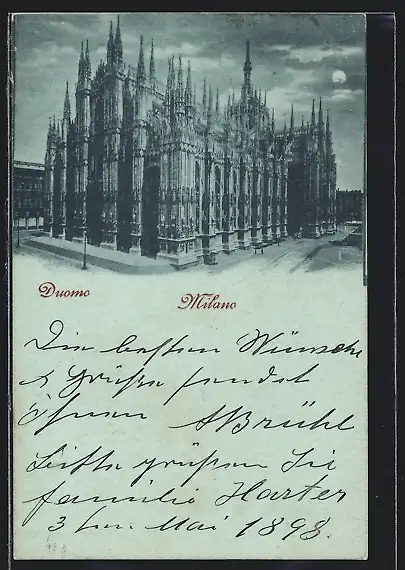 Duomo
Milano
Die besten Wünsche
& Grüße sendet
Ihnen ABrühl
Bitte grüßen Sie
familie Harter
3 ten Mai 1898.